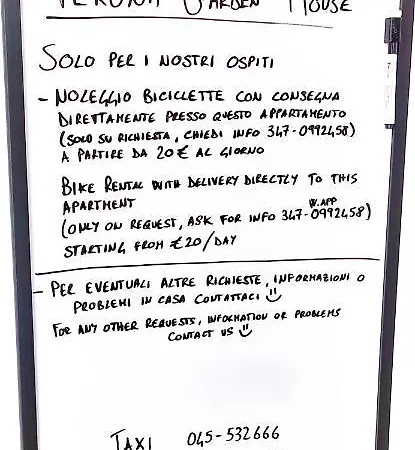 VERONA GARDEN HOUSE
SOLO PER I NOSTRI OSPITI
- NOLEGGIO BICICLETTE CON CONSEGNA
DIRETTAMENTE PRESSO QUESTO APPARTAMENTO
(SOLO SU RICHIESTA, CHIEDI INFO 347-0992458)
A PARTIRE DA 20€ AL GIORNO
BIKE RENTAL WITH DELIVERY DIRECTLY TO THIS
APARTMENT
W.APP
(ONLY ON REQUEST, ASK FOR INFO 347-0992458)
STARTING FROM €20/DAY
- PER EVENTUALI ALTRE RICHIESTE, INFORMAZIONI O
PROBLEMI IN CASA CONTATTACI
FOR ANY OTHER REQUESTS, INFORMATION OR PROBLEMS
CONTACT US
TAXI 045-532666